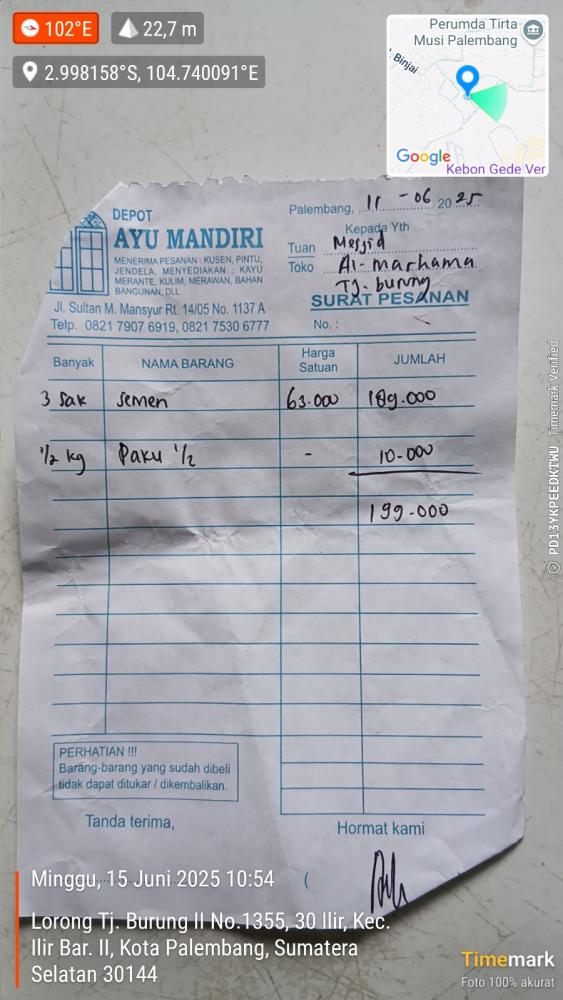 102°E
22,7 m
2.998158°S, 104.740091°E
Perumda Tirta
Musi Palembang
Binjai
Google
Kebon Gede Ver
DEPOT
AYU MANDIRI
MENERIMA PESANAN : KUSEN, PINTU,
JENDELA, MENYEDIAKAN : KAYU
MERANTE, KULIM, MERAWAN, BAHAN
BANGUNAN, DLL
Jl. Sultan M. Mansyur Rt. 14/05 No. 1137 A
Telp. 0821 7907 6919, 0821 7530 6777
Palembang, 11 - 06 2025
Kepada Yth
Tuan Mesjid
Toko Al-marhama
Tj. burung
SURAT PESANAN
No. :
Banyak NAMA BARANG Harga Satuan JUMLAH
3 sak semen 63.000 189.000
1/2 kg Paku 1/2 - 10.000
199.000
PERHATIAN !!!
Barang-barang yang sudah dibeli
tidak dapat ditukar / dikembalikan.
Tanda terima, Hormat kami
Minggu, 15 Juni 2025 10:54
Lorong Tj. Burung II No.1355, 30 Ilir, Kec.
Ilir Bar. II, Kota Palembang, Sumatera
Selatan 30144
Timemark
Foto 100% akurat
PD13YKPEEDKTWU Timemark Verified